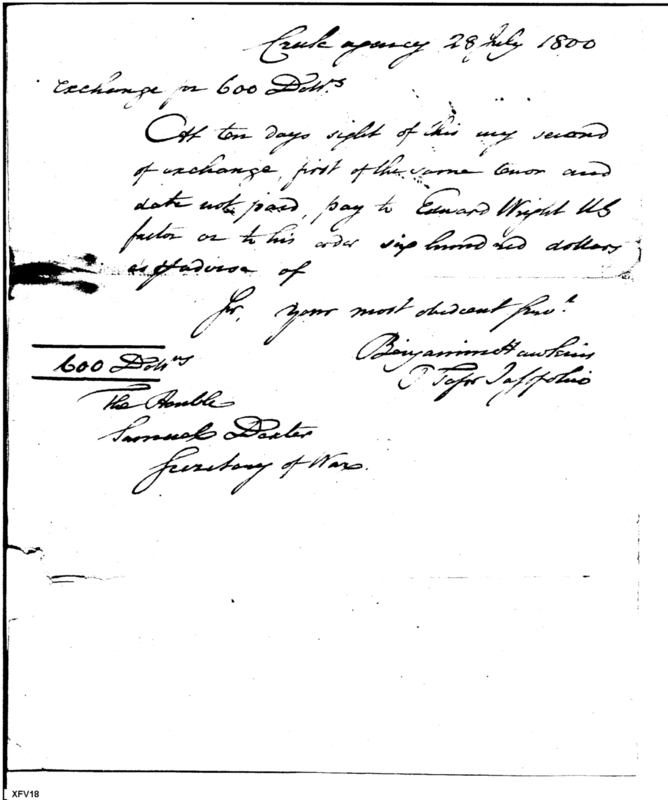 Creek agency 28 July 1800
Exchange for 600 Dollrs
At ten days sight of this my second
of exchange, first of the same tenor and
date not paid, pay to Edward Wright US
factor or to his order six hundred dollars
as pr advice of
Sir, your most obedient Servt
Benjamin Hawkins
600 Dollrs
The Honble
Samuel Dexter
Secretary of War.
XFV18